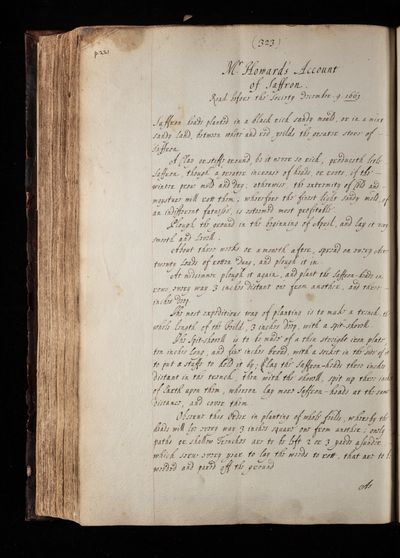 p.221
(323)
Mr. Howard's Account
of Saffron.
Read before the Society December. 9. 1663
Saffron heads planted in a black rich sandy mould, or in a mixt
sandy land, between white and red yeilds the greatest store of
Saffron.
A Clay or stiffe ground be it never so rich, produceth little
Saffron, though a greater increase of heads, or roots, if the
winter prove mild and dry; otherwise the extremity of Cold and
moysture will rott them; wherefore the finest light sandy mold, of
an indifferent fatness, is esteemed most profitable.
Plough the ground in the beginning of Aprill, and lay it very
smooth and levell.
About three weeks or a month after, spread on every acre
twenty loads of rotten dung, and plough it in.
At midsommer plough it again, and plant the Saffron-heads in
rows every way 3 inches distant one from another, and three
inches deep.
The most expeditious way of planting is to make a trench, the
whole length of the feild, 3 inches deep, with a spit-shovell
The Spit-shovell is to be made of a thin streight iron plate,
ten inches long, and five inches broad, with a socket in the side of it
to put a staffe to hold it by; Lay the Saffron-heads three inches
distant in the trench, then with the shovell, spit up three inches
of Earth upon them, whereon lay more Saffron-heads at the same
distance, and cover them.
Observe this Order in planting of whole feilds, whereby the
heads will lie every way 3 inches square one from another; only
paths or shallow Trenches are to be left 2 or 3 yards asunder
which serve every year to lay the weeds to rott, that are to be
weeded and pared off the ground
At